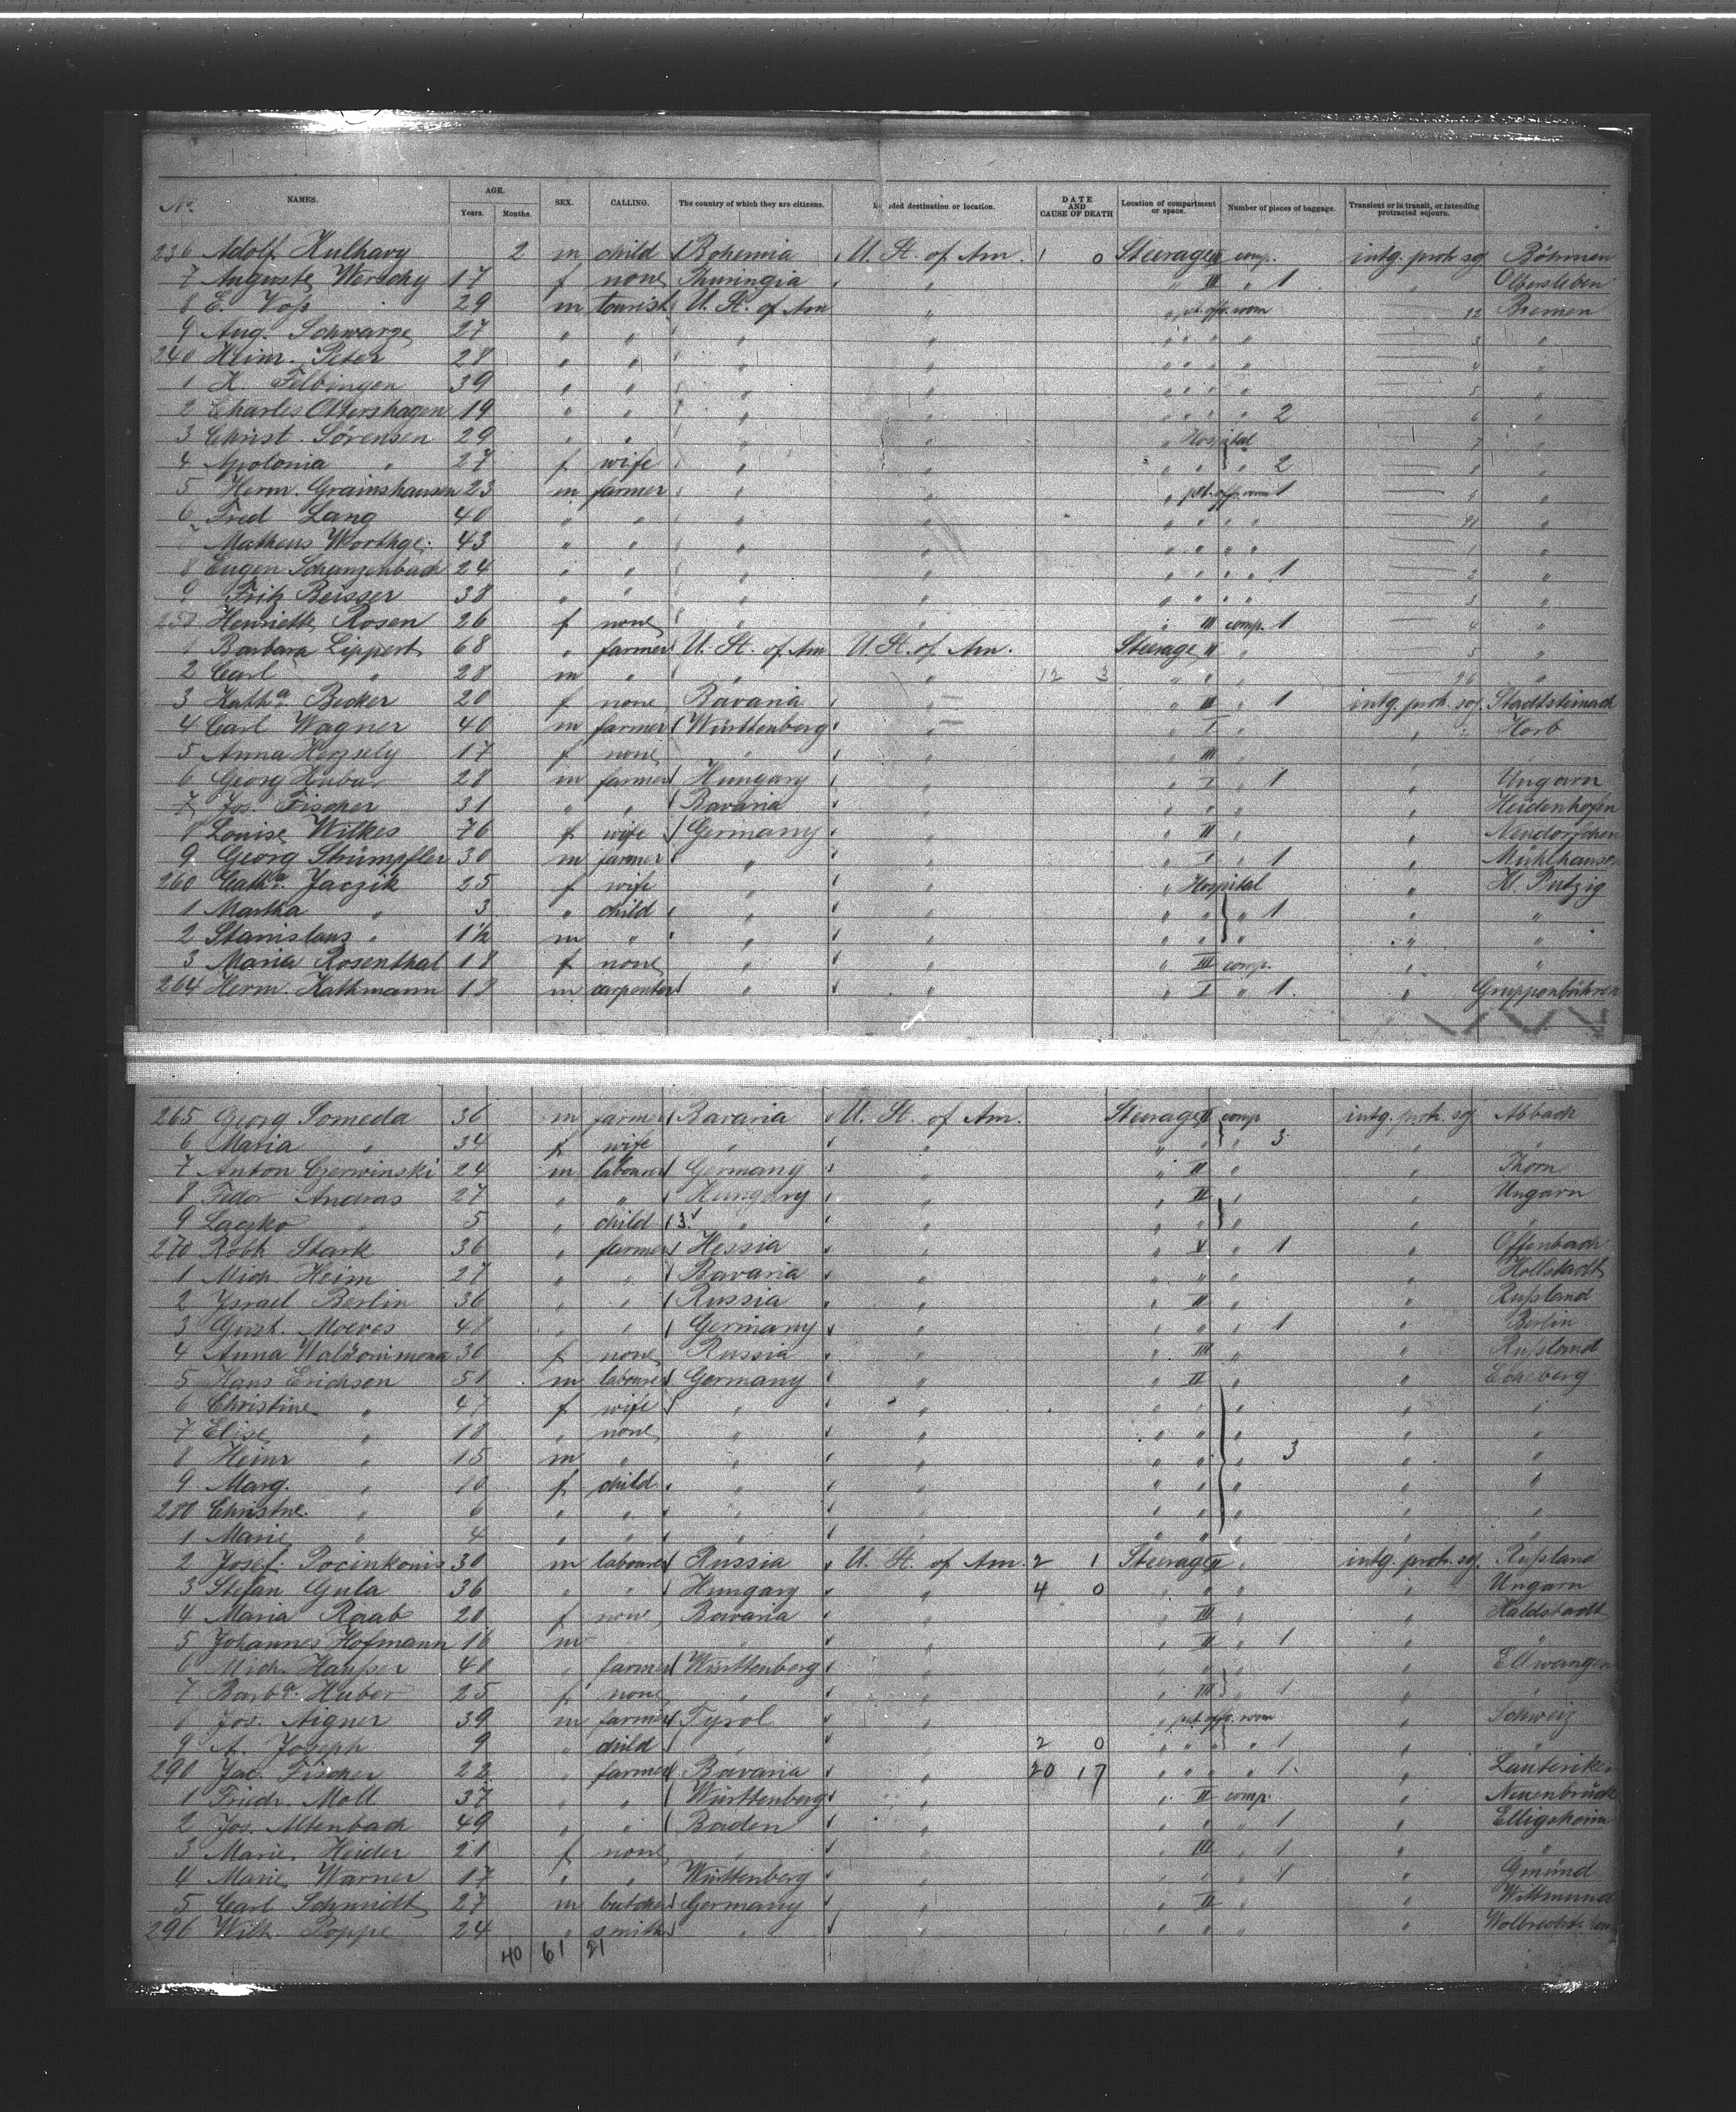 No. NAMES. AGE. Years. Months. SEX. CALLING. The country of which they are citizens. destination or location. DATE AND CAUSE OF DEATH Location of compartment or space. Number of pieces of baggage. Transient or in transit, or intending protracted sojourn.
236 Adolf Kulhavy 2 m child Bohemia U. St. of Am. 1 0 Steerage II comp. intg. protr. soj. Böhmen
7 Auguste Werschy 17 f none Thuringia " " III " 1 " Olbersleben
8 E. Voß 29 m tourist U. St. of Am " " pet. off. room 82 Bremen
9 Aug. Schwarze 27 " " " " " " " " 3 "
240 Heinr. Peter 28 " " " " " " " " 4 "
1 K. Felbingen 39 " " " " " " " " 5 "
2 Charles Ottershagen 19 " " " " " " " " 2 6 "
3 Christ. Sørensen 29 " " " " " Hospital 7 "
4 Apolonia " 27 f wife " " " " " 2 8 "
5 Herm. Grainshausen 23 m farmer " " " pet. off. room 1 9 "
6 Fred Lang 40 " " " " " " " " 90 "
7 Matheus Worthge. 43 " " " " " " " " 1 "
8 Eugen Schanzenbach 24 " " " " " " " " 1 2 "
9 Fritz Beisser 38 " " " " " " " " 3 "
250 Henriette Rosen 26 f none " " " III comp. 1 4 "
1 Barbara Lippert 68 " farmer U. St. of Am U. St. of Am. Steerage II " 5 "
2 Carl " 28 m " " " 12 3 " " " 96 "
3 Kath.a Becker 20 f none Bavaria " " III " 1 intg. protr. soj. Stadtsteinach
4 Carl Wagner 40 m farmer Württenberg " " I " " Horb
5 Anna Herzsely 17 f none " " " III " " "
6 Georg Huba 28 m farmer Hungary " " I " 1 " Ungarn
7 Jos. Fischer 31 " " Bavaria " " " " " Heidenhofen
8 Louise Wilkes 76 f wife Germany " " II " " Neudörfchen
9 Georg Strümpfler 30 m farmer " " " I " 1 " Mühlhausen
260 Cath.a Jaczik 25 f wife " " " Hospital " Kl. Putzig
1 Martha " 3 " child " " " " " 1 " "
2 Stanislaus " 1½ m " " " " " " " "
3 Maria Rosenthal 18 f none " " " III comp. " "
264 Herm. Kathmann 18 m carpenter " " " I " 1 " Gruppenbühren
265 Georg Someda 36 m farmer Bavaria U. St. of Am. Steerage II comp intg. protr. soj. Abbach
6 Maria " 34 f wife " " " " " 3 " "
7 Anton Czerwinski 24 m labourer Germany " " II " " Thorn
8 Fedor Andras 27 " " Hungary " " II " " Ungarn
9 Laczko " 5 " child 3. " " " " " " "
270 Robt Stark 36 " farmer Hessia " " V " 1 " Offenbach
1 Mich Heim 27 " " Bavaria " " " " Hollstadt
2 Israel Berlin 36 " " Russia " " II " " Rußland
3 Gust. Moeves 48 " " Germany " " " " 1 " Berlin
4 Anna 30 f none Russia " " III " " Rußland
5 Hans Erichsen 51 m labourer Germany " " II " "
6 Christine " 47 f wife " " " " " " "
7 Elise " 18 " none " " " " " " "
8 Heinr " 15 m " " " " " " 3 " "
9 Marg. " 10 f child " " " " " " "
280 Christne. " 6 " " " " " " " " "
1 Marie " 4 " " " " " " " " "
2 Josef. Pocinkonis 30 m labourer Russia U. St. of Am. 2 1 Steerage II " intg. protr. soj. Rußland
3 Stefan Gula 36 " " Hungary " 4 0 " " " " Ungarn
4 Maria Raab 20 f none Bavaria " " III " " Haldstadt
5 Johannes Hofmann 16 m " " " II " 1 " "
6 Mich. Haußer 40 " farmer Württenberg " " " " " Ellwangen
7 Barba. Huber 25 f none " " " III " 1 " "
8 Jos. Aigner 39 m farmer Tyrol " " pet. off. room " Schweiz
9 A. Joseph 9 " child " " 2 0 " " " " 1 " "
290 Jac. Fischer 22 " farmer Bavaria " 20 17 " " " " 1. "
1 Friedr. Moll 37 " " Württenberg " " II comp. " Neuenbrück
2 Jos. Altenbach 49 " " Baden " " " " 1 "
3 Marie Heider 21 f none " " " III " 1 " "
4 Marie Warner 17 " " Württenberg " " " " 1 " Gmünd
5 Carl Schmidt 27 m butcher Germany " " II " " Wittmund
296 Wilh. Poppe 24 " smith " " " " " "
40 61 21